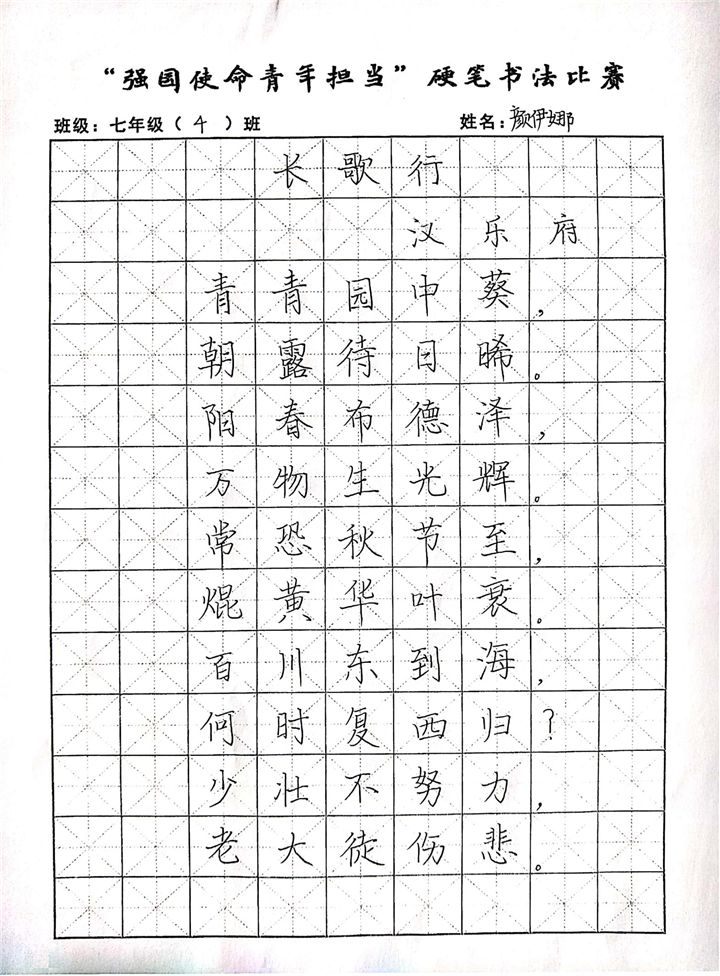 “强国使命青年担当”硬笔书法比赛
班级：七年级（4）班 姓名：颜伊娜
长歌行
汉乐府
青青园中葵，
朝露待日晞。
阳春布德泽，
万物生光辉。
常恐秋节至，
焜黄华叶衰。
百川东到海，
何时复西归？
少壮不努力，
老大徒伤悲。